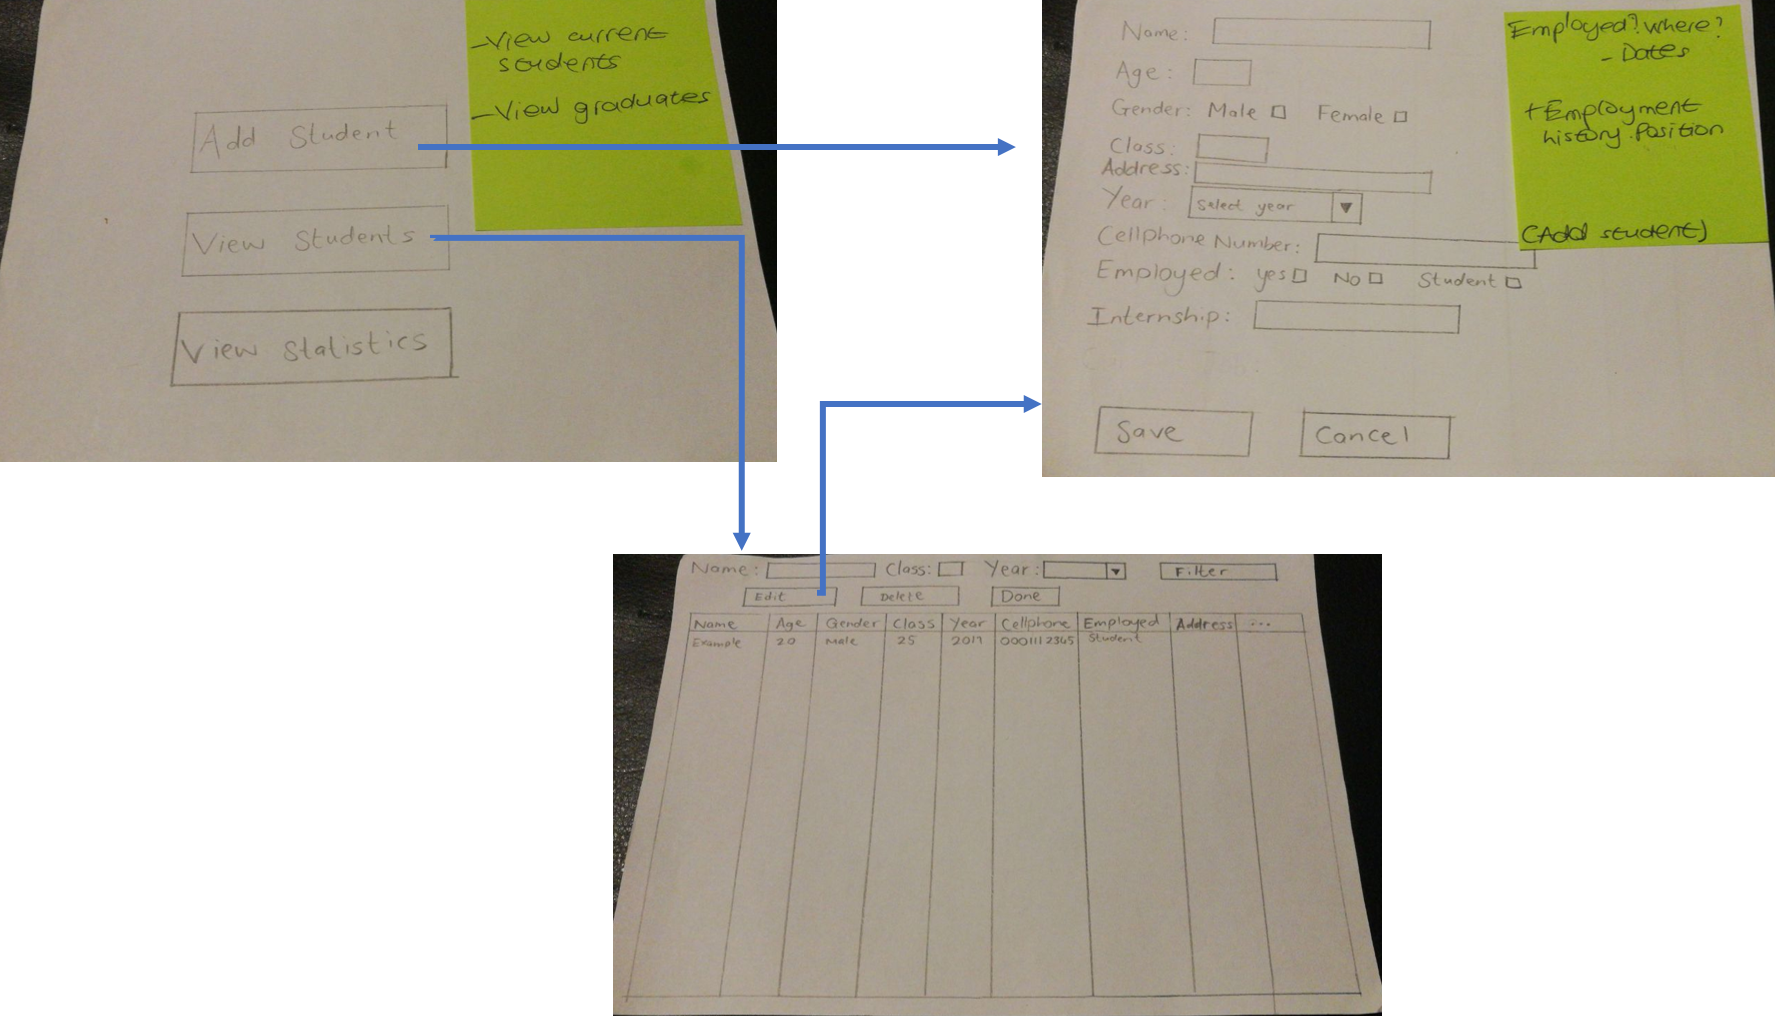 Add Student
View Students
View Statistics
-View current
students
-View graduates
Name:
Age:
Gender: Male Female
Class:
Address:
Year: Select year
Cellphone Number:
Employed: yes No Student
Internship:
Save Cancel
Employed? Where?
- Dates
+Employment
history. Position
(Add student)
Name: Class: Year: Filter
Edit Delete Done
Name Age Gender Class Year Cellphone Employed Address ...
Example 20 Male 25 2017 0001112345 Student